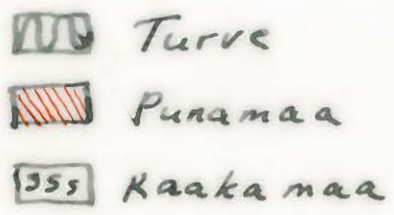 Turve
Punamaa
sss Kaakamaa